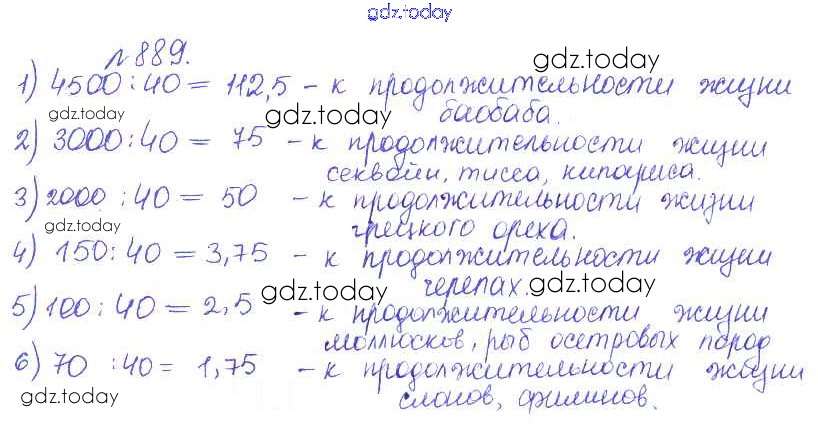 gdz.today
№ 889.
gdz.today
1) 4500 : 40 = 112,5 - к продолжительности жизни
gdz.today gdz.today баобаба.
2) 3000 : 40 = 75 - к продолжительности жизни
секвойи, тисса, кипариса.
3) 2000 : 40 = 50 - к продолжительности жизни
gdz.today грецкого ореха.
4) 150 : 40 = 3,75 - к продолжительности жизни
gdz.today черепах. gdz.today
5) 100 : 40 = 2,5 - к продолжительности жизни
моллюсков, рыб осетровых пород
6) 70 : 40 = 1,75 - к продолжительности жизни
gdz.today слонов, филинов.